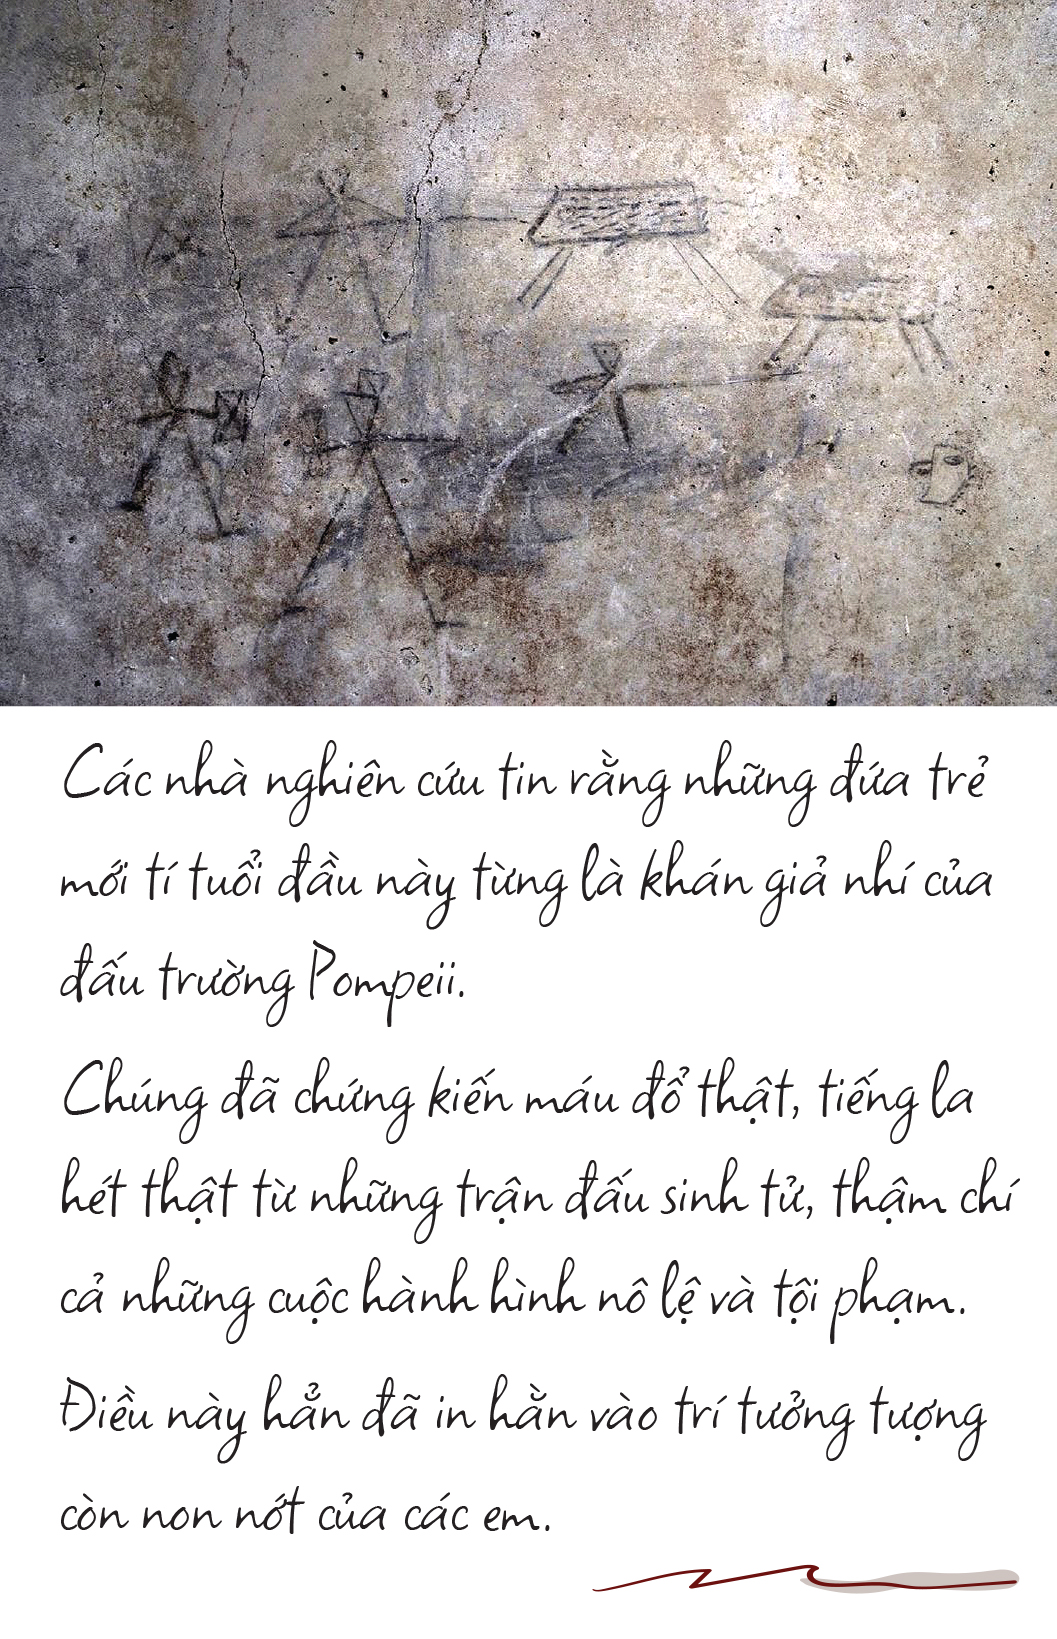 Các nhà nghiên cứu tin rằng những đứa trẻ
mới tí tuổi đầu này từng là khán giả nhí của
đấu trường Pompeii.
Chúng đã chứng kiến máu đổ thật, tiếng la
hét thật từ những trận đấu sinh tử, thậm chí
cả những cuộc hành hình nô lệ và tội phạm.
Điều này hẳn đã in hằn vào trí tưởng tượng
còn non nớt của các em.